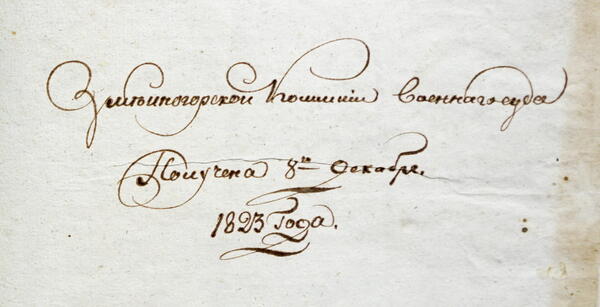 Змѣиногорской Комисіи военнаго суда
Получена 8го декабря.
1823 года.